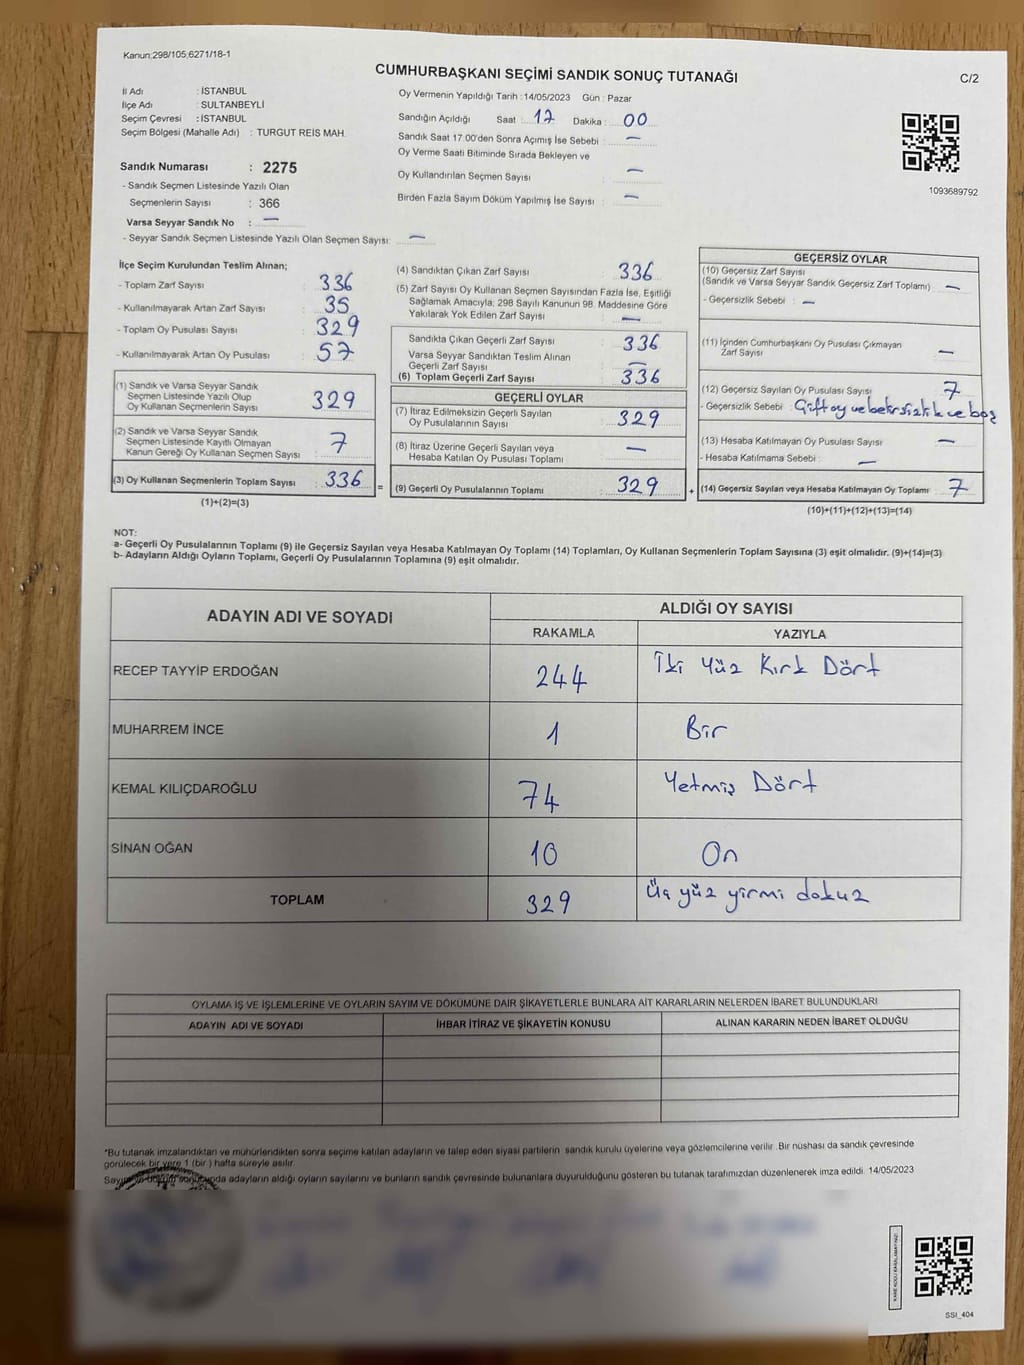 Kanun:298/105;6271/18-1
CUMHURBAŞKANI SEÇİMİ SANDIK SONUÇ TUTANAĞI
C/2
İl Adı : İSTANBUL
İlçe Adı : SULTANBEYLİ
Seçim Çevresi : İSTANBUL
Seçim Bölgesi (Mahalle Adı) : TURGUT REİS MAH.
Oy Vermenin Yapıldığı Tarih : 14/05/2023 Gün : Pazar
Sandığın Açıldığı Saat : 17 Dakika : 00
Sandık Saat 17.00'den Sonra Açımış İse Sebebi : —
Oy Verme Saati Bitiminde Sırada Bekleyen ve
Oy Kullandırılan Seçmen Sayısı : —
Birden Fazla Sayım Döküm Yapılmış İse Sayısı : —
1093689792
Sandık Numarası : 2275
- Sandık Seçmen Listesinde Yazılı Olan
Seçmenlerin Sayısı : 366
Varsa Seyyar Sandık No : —
- Seyyar Sandık Seçmen Listesinde Yazılı Olan Seçmen Sayısı: —
İlçe Seçim Kurulundan Teslim Alınan;
- Toplam Zarf Sayısı : 336
- Kullanılmayarak Artan Zarf Sayısı : 35
- Toplam Oy Pusulası Sayısı : 329
- Kullanılmayarak Artan Oy Pusulası : 57
(1) Sandık ve Varsa Seyyar Sandık
Seçmen Listesinde Yazılı Olup
Oy Kullanan Seçmenlerin Sayısı : 329
(2) Sandık ve Varsa Seyyar Sandık
Seçmen Listesinde Kayıtlı Olmayan
Kanun Gereği Oy Kullanan Seçmen Sayısı : 7
(3) Oy Kullanan Seçmenlerin Toplam Sayısı : 336
(1)+(2)=(3)
=
(4) Sandıktan Çıkan Zarf Sayısı : 336
(5) Zarf Sayısı Oy Kullanan Seçmen Sayısından Fazla İse, Eşitliği
Sağlamak Amacıyla; 298 Sayılı Kanunun 98. Maddesine Göre
Yakılarak Yok Edilen Zarf Sayısı : —
Sandıkta Çıkan Geçerli Zarf Sayısı : 336
Varsa Seyyar Sandıktan Teslim Alınan
Geçerli Zarf Sayısı : —
(6) Toplam Geçerli Zarf Sayısı : 336
GEÇERLİ OYLAR
(7) İtiraz Edilmeksizin Geçerli Sayılan
Oy Pusulasının Sayısı : 329
(8) İtiraz Üzerine Geçerli Sayılan veya
Hesaba Katılan Oy Pusulası Toplamı : —
(9) Geçerli Oy Pusulalarının Toplamı : 329
+
GEÇERSİZ OYLAR
(10) Geçersiz Zarf Sayısı
(Sandık ve Varsa Seyyar Sandık Geçersiz Zarf Toplamı) : —
- Geçersizlik Sebebi : —
(11) İçinden Cumhurbaşkanı Oy Pusulası Çıkmayan
Zarf Sayısı : —
(12) Geçersiz Sayılan Oy Pusulası Sayısı : 7
- Geçersizlik Sebebi : Çift oy ve belirsizlik ve boş
(13) Hesaba Katılmayan Oy Pusulası Sayısı : —
- Hesaba Katılmama Sebebi : —
(14) Geçersiz Sayılan veya Hesaba Katılmayan Oy Toplamı : 7
(10)+(11)+(12)+(13)=(14)
NOT:
a- Geçerli Oy Pusulalarının Toplamı (9) ile Geçersiz Sayılan veya Hesaba Katılmayan Oy Toplamı (14) Toplamları, Oy Kullanan Seçmenlerin Toplam Sayısına (3) eşit olmalıdır. (9)+(14)=(3)
b- Adayların Aldığı Oyların Toplamı, Geçerli Oy Pusulalarının Toplamına (9) eşit olmalıdır.
ADAYIN ADI VE SOYADI
ALDIĞI OY SAYISI
RAKAMLA YAZIYLA
RECEP TAYYİP ERDOĞAN 244 İki Yüz Kırk Dört
MUHARREM İNCE 1 Bir
KEMAL KILIÇDAROĞLU 74 Yetmiş Dört
SİNAN OĞAN 10 On
TOPLAM 329 Üç yüz yirmi dokuz
OYLAMA İŞ VE İŞLEMLERİNE VE OYLARIN SAYIM VE DÖKÜMÜNE DAİR ŞİKAYETLERLE BUNLARA AİT KARARLARIN NELERDEN İBARET BULUNDUKLARI
ADAYIN ADI VE SOYADI İHBAR İTİRAZ VE ŞİKAYETİN KONUSU ALINAN KARARIN NEDEN İBARET OLDUĞU
*Bu tutanak imzalandıktan ve mühürlendikten sonra seçime katılan adayların ve talep eden siyasi partilerin sandık kurulu üyelerine veya gözlemcilerine verilir. Bir nüshası da sandık çevresinde
görülecek bir yere 1 (bir) hafta süreyle asılır.
Sayım ve döküm sonucunda adayların aldığı oyların sayılarını ve bunların sandık çevresinde bulunanlara duyurulduğunu gösteren bu tutanak tarafımızdan düzenlenerek imza edildi. 14/05/2023
SSI_404